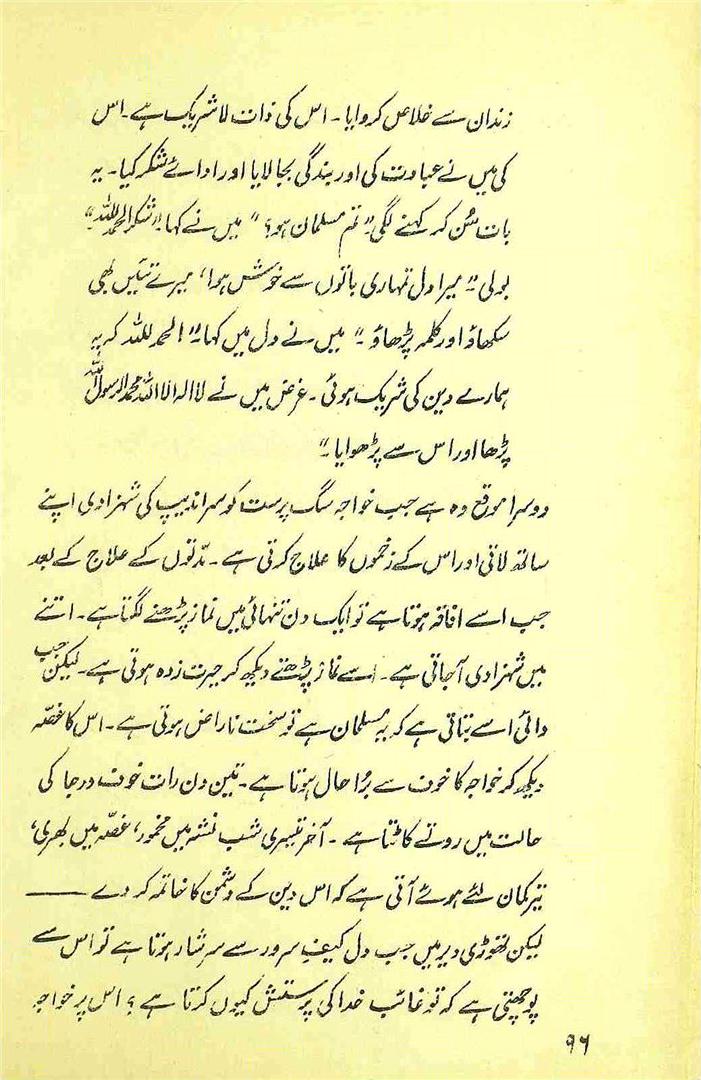 زندان سے خلاص کروایا۔ اس کی ذات لا شریک ہے۔ اس
کی میں نے عبادت کی اور بندگی بجا لایا اور ادائے شکر کیا۔ یہ
بات سُن کر کہنے لگی "تم مسلمان ہو؟" میں نے کہا "شکر الحمدللہ"
بولی "میرا دل تمہاری باتوں سے خوش ہوا، میرے تئیں بھی
سکھاؤ اور کلمہ پڑھاؤ۔" میں نے دل میں کہا۔" الحمد للہ کہ یہ
ہمارے دین کی شریک ہوئی۔ غرض میں نے لا الہ الا اللہ محمد الرسول اللہ
پڑھا اور اس سے پڑھوایا۔"
دوسرا موقع وہ ہے جب خواجہ سگ پرست کو سراندیپ کی شہزادی اپنے
ساتھ لاتی اور اس کے زخموں کا علاج کرتی ہے۔ مدّتوں کے علاج کے بعد
جب اسے افاقہ ہوتا ہے تو ایک دن تنہائی میں نماز پڑھنے لگتا ہے۔ اتنے
میں شہزادی آجاتی ہے۔ اسے نماز پڑھتے دیکھ کر حیرت زدہ ہوتی ہے۔ لیکن جب
دائی اسے بتاتی ہے کہ یہ مسلمان ہے تو سخت ناراض ہوتی ہے۔ اس کا غصّہ
دیکھ کر خواجہ کا خوف سے بُرا حال ہوتا ہے۔ تین دن رات خوف و رجا کی
حالت میں روتے کاٹتا ہے۔ آخر تیسری شب نشہ میں مخمور، غصّہ میں بھری،
تیر کمان لئے ہوئے آتی ہے کہ اس دین کے دشمن کا خاتمہ کر دے ——
لیکن تھوڑی دیر میں جب دل کیفِ سرور سے سرشار ہوتا ہے تو اس سے
پوچھتی ہے کہ تو غائب خدا کی پرستش کیوں کرتا ہے؟ اس پر خواجہ
۹۶